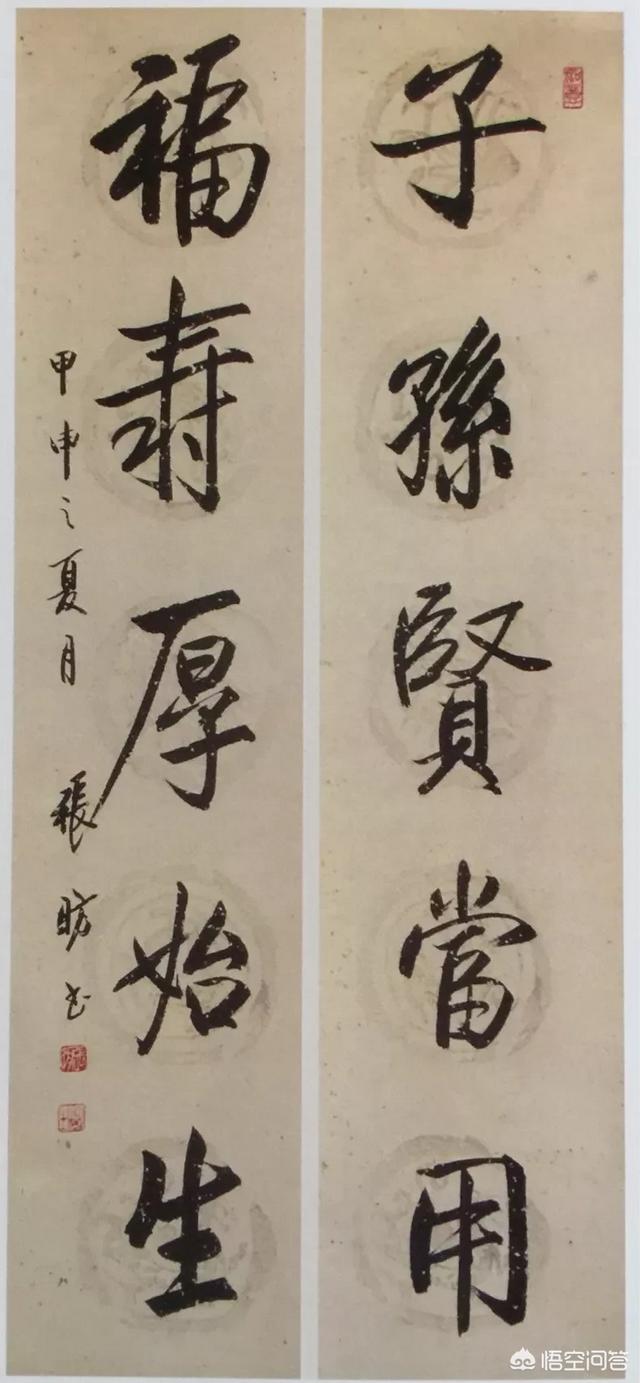 子孫賢當用
福壽厚始生
甲申之夏月 張昉书
悟空问答